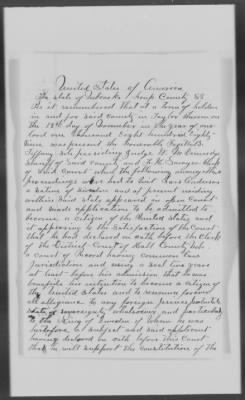 United States of America
The State of Nebraska Loup County SS
Be it remembered that at a term of
in and for said county in Taylor thereon on
the 18th day of November in the year of our
Lord one thousand Eight hundred Eighty-
nine, was present the Honorable
presiding Judge
Sheriff of said county and
of said Court when the following among other
proceedings was had to wit
a native of Sweden and at present residing
within said State appeared in open Court
and made application to be admitted to
become a citizen of the United States and
it appearing to the satisfaction of the Court
that he had declared on oath before the Clerk
of the District Court of Hall County Neb
a court of record having common law
jurisdiction and using a seal two years
at least before his admission that he was
bonafide his intention to become a citizen of
the United States and to renounce forever
all allegiance to any foreign prince, potentate
state or sovereignty whatsoever and particularly
to the King of Sweden of whom he was
heretofore a subject and said applicant
having declared on oath before this Court
that he will support the Constitution of the